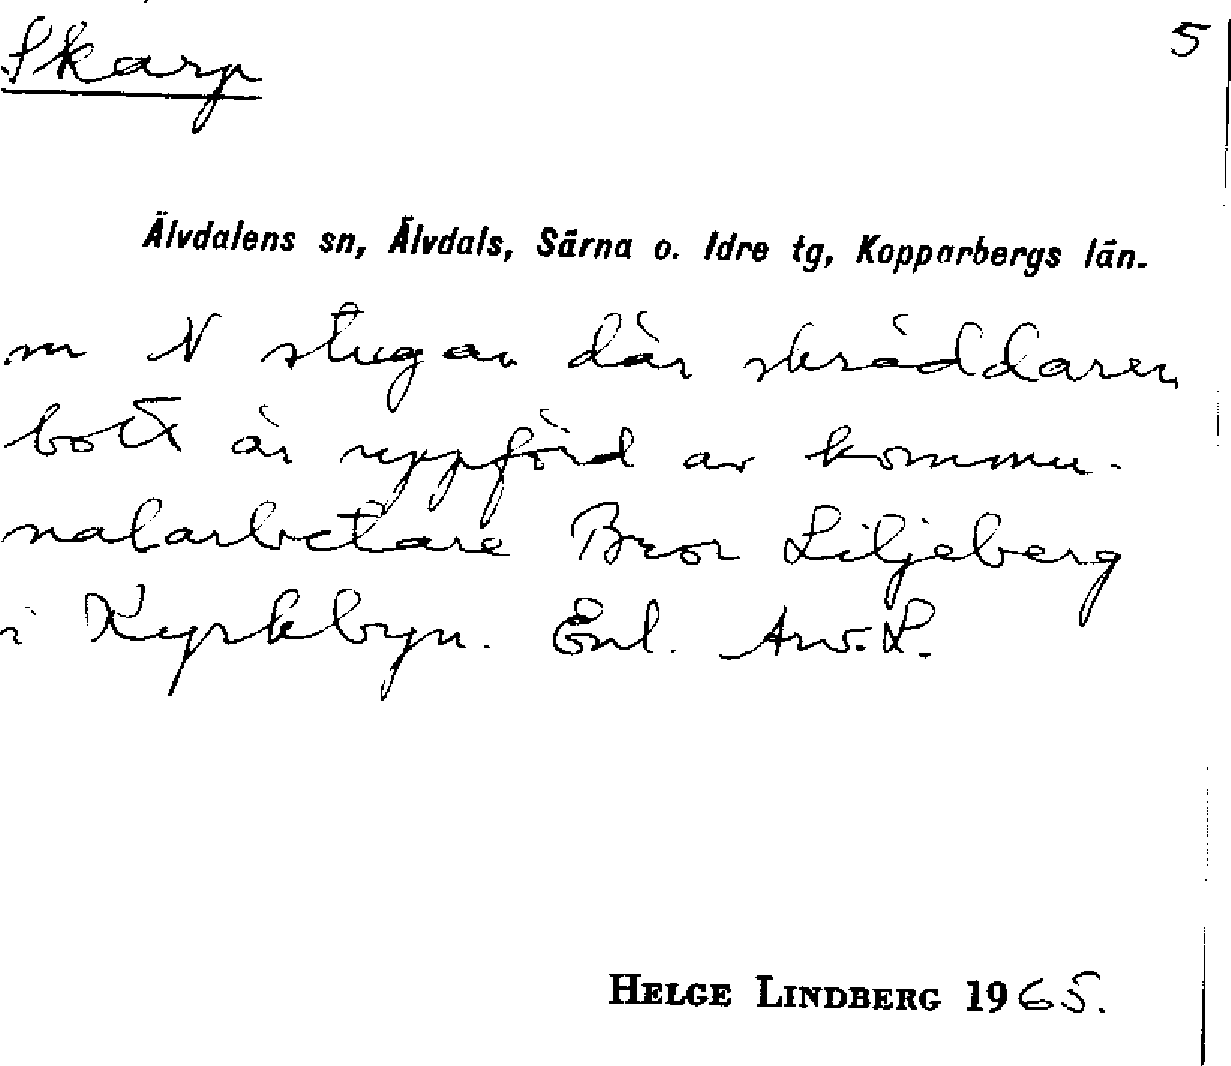 Skarp
5
Älvdalens sn, Älvdals, Särna o. Idre tg, Kopparbergs län.
m N stugan där skräddaren
bott är uppförd av kommu-
nalarbetare Bror Liljeberg
i Kyrkbyn. Enl. Anv. L.
HELGE LINDBERG 1965.